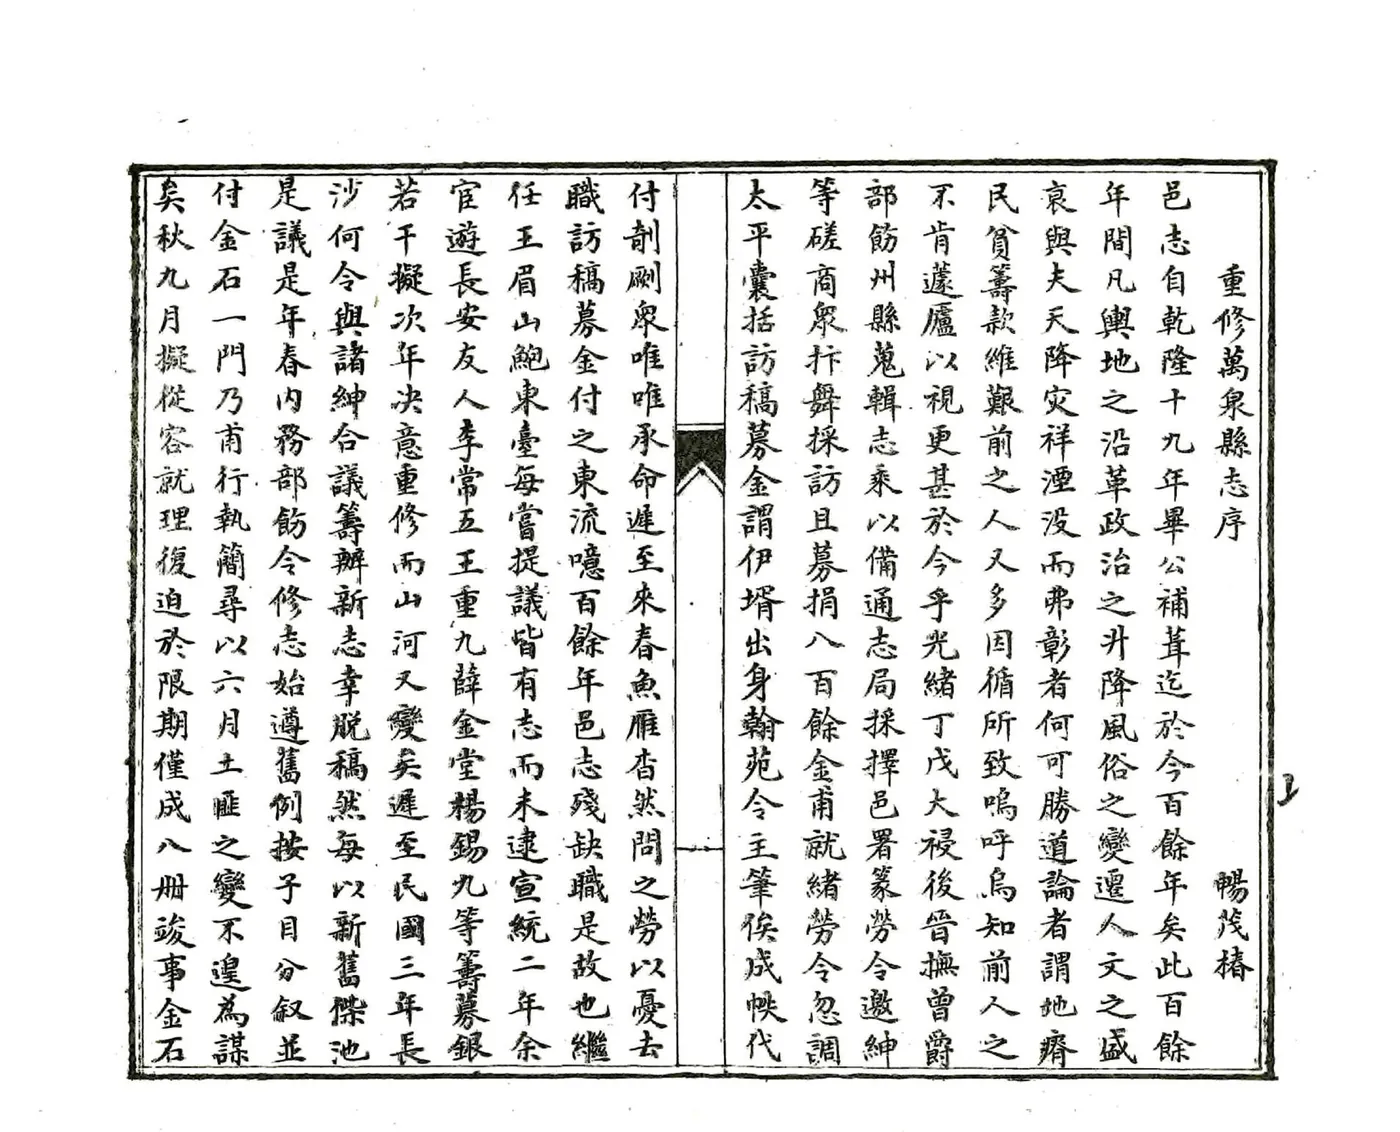 重修萬泉縣志序 暢茂椿
邑志自乾隆十九年畢公補葺迄於今百餘年矣此百餘
年間凡輿地之沿革政治之升降風俗之變遷人文之盛
衰與夫天降灾祥湮没而弗彰者何可勝道論者謂地瘠
民貧籌款維艱前之人又多因循所致嗚呼烏知前人之
不肯蘧廬以視更甚於今乎光緒丁戊大祲後晉撫曾爵
部飭州縣蒐輯志乘以備通志局採擇邑署篆勞令邀紳
等磋商衆抃舞採訪且募捐八百餘金甫就緒勞令忽調
太平囊括訪稿募金謂伊壻出身翰苑令主筆俟成帙代
付剞劂衆唯唯承命遲至來春魚雁杳然問之勞以憂去
職訪稿募金付之東流噫百餘年邑志殘缺職是故也繼
任王眉山鮑東臺每嘗提議皆有志而未逮宣統二年余
宦遊長安友人李常五王重九薛金堂楊錫九等籌募銀
若干擬次年决意重修而山河又變矣遲至民國三年長
沙何令與諸紳合議籌辦新志幸脱稿然每以新舊傑池
是議是年春内務部飭令修志始遵舊例按子目分叙並
付金石一門乃甫行執簡尋以六月土匪之變不遑為謀
矣秋九月擬從容就理復迫於限期僅成八册竣事金石